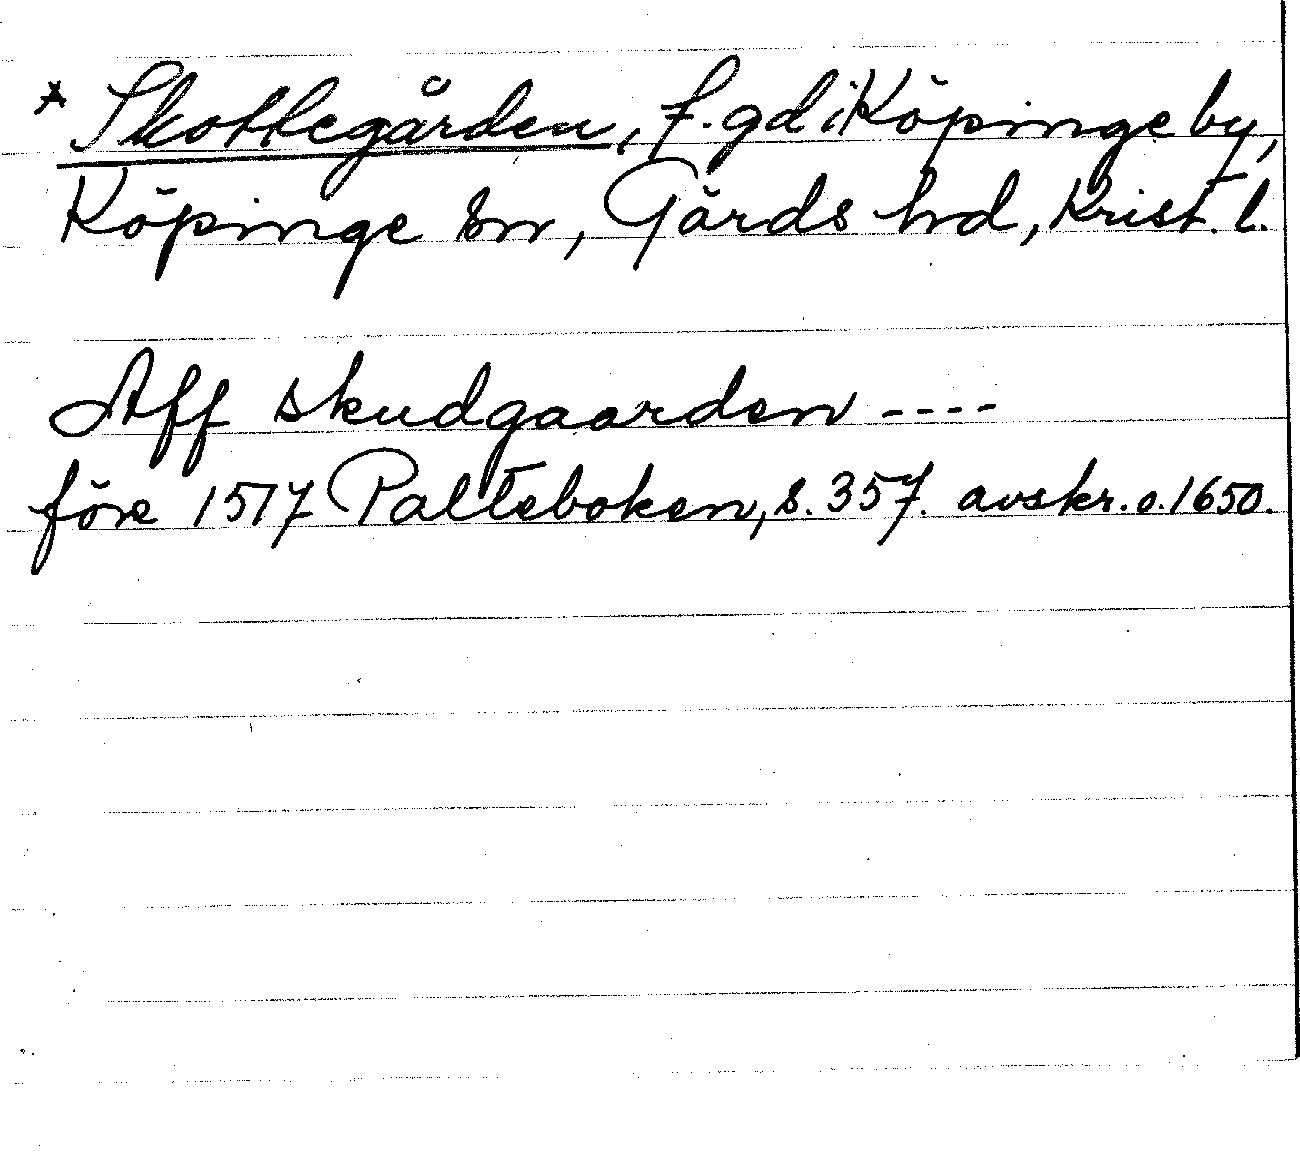 * Skottegården, f. gd i Köpinge by,
Köpinge sn, Gärds hd, Krist. l.
Aff skudgaarden ----
före 1517 Palteboken, s. 357. avskr. o. 1650.